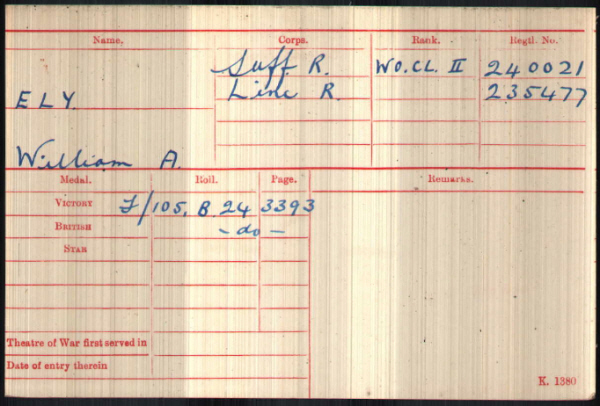 Name. Corps. Rank. Regtl. No.
Suff. R. WO.CL. II 240021
ELY. Linc R. 235477
William A.
Medal. Roll. Page. Remarks.
VICTORY J/105. B 24 3393
BRITISH - do -
STAR
Theatre of War first served in
Date of entry therein
K. 1380